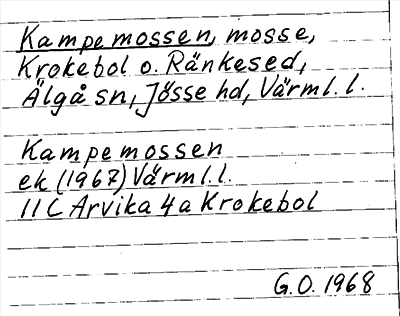 Kampemossen, mosse,
Krokebol o. Ränkesed,
Älgå sn, Jösse hd, Värml. l.
Kampemossen
ek (1967) Värml.l.
11 C Arvika 4 a Krokebol
G.O. 1968